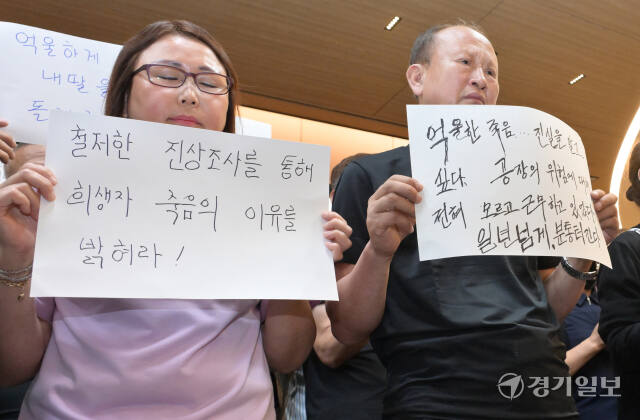 억울하게
내 딸을
철저한 진상조사를 통해
희생자 죽음의 이유를
밝혀라!
억울한 죽음... 진실을 알고
싶다. 공장의 위험에
전혀 모르고 근무하고
일년넘게, 분통터진다.
경기일보